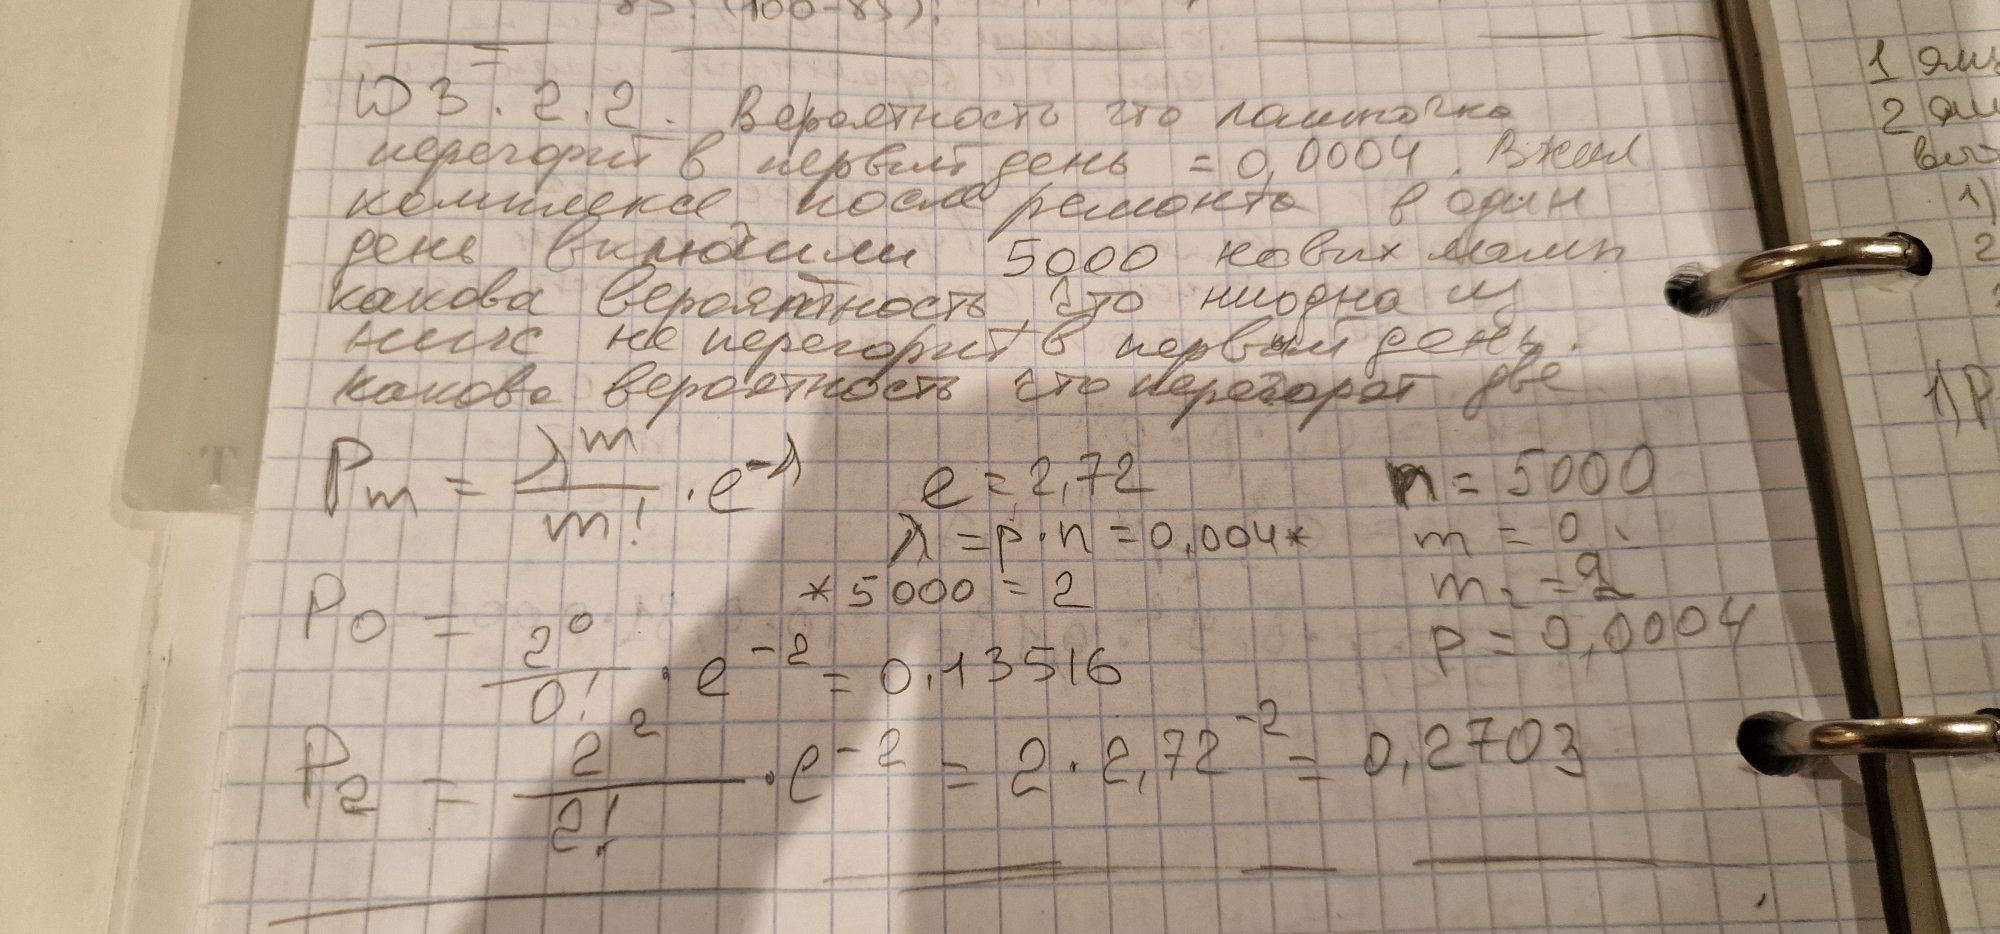 85! (100-85)!
ДЗ. 2.2. Вероятность что лампочка
перегорит в первый день = 0,0004. В жил
комплексе после ремонта в один
день включили 5000 новых ламп
какова вероятность что ниодна из
них не перегорит в первый день.
какова вероятность что перегорят две
Pm = λ^m / m! · e^-λ
e = 2,72
n = 5000
λ = p · n = 0,004*
m = 0
*5000 = 2
m₂ = 2
p = 0,0004
P0 = 2^0 / 0! · e^-2 = 0.13516
P2 = 2^2 / 2! · e^-2 = 2 · 2,72^-2 = 0,2703
T
1
2
1)
2
1) P